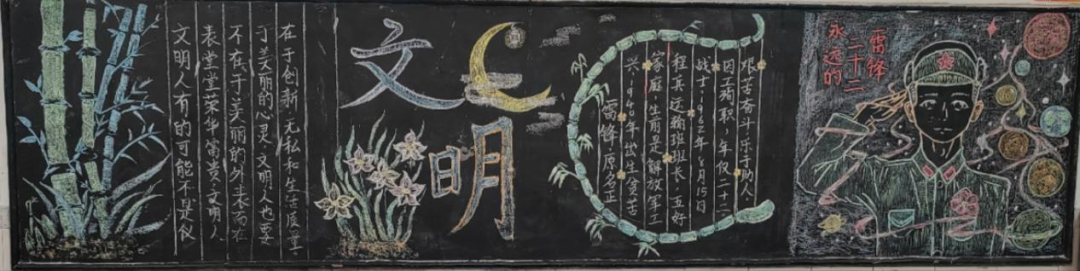 文明人有的可能不是仪
表堂堂荣华富贵,文明人
不在于美丽的外表而在
于美丽的心灵,文明人也要
在于创新,无私和生活质
文明
雷锋,原名正
兴,1940年出生贫苦
家庭,生前是解放军工
程兵运输班班长,五好
战士,1962年8月15日
因公殉职,年仅二十二
艰苦奋斗乐于助人
永远的
二十二
雷锋